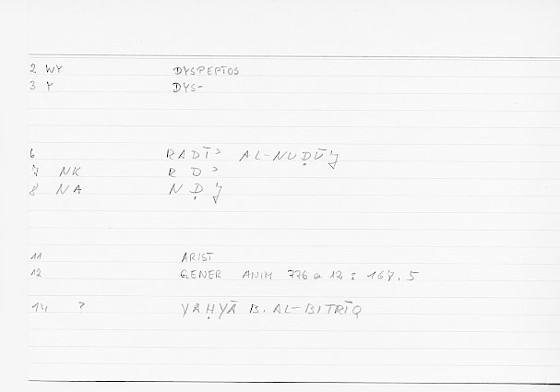 2 WY DYSPEPTOS
3 Y DYS-
6 RADĪʾ AL-NUḌŪǦ
7 NK R D ʾ
8 NA N Ḍ Ǧ
11 ARIST
12 GENER ANIM 776 a 12 : 167.5
14 ? YAḤYĀ B. AL-BITRĪQ